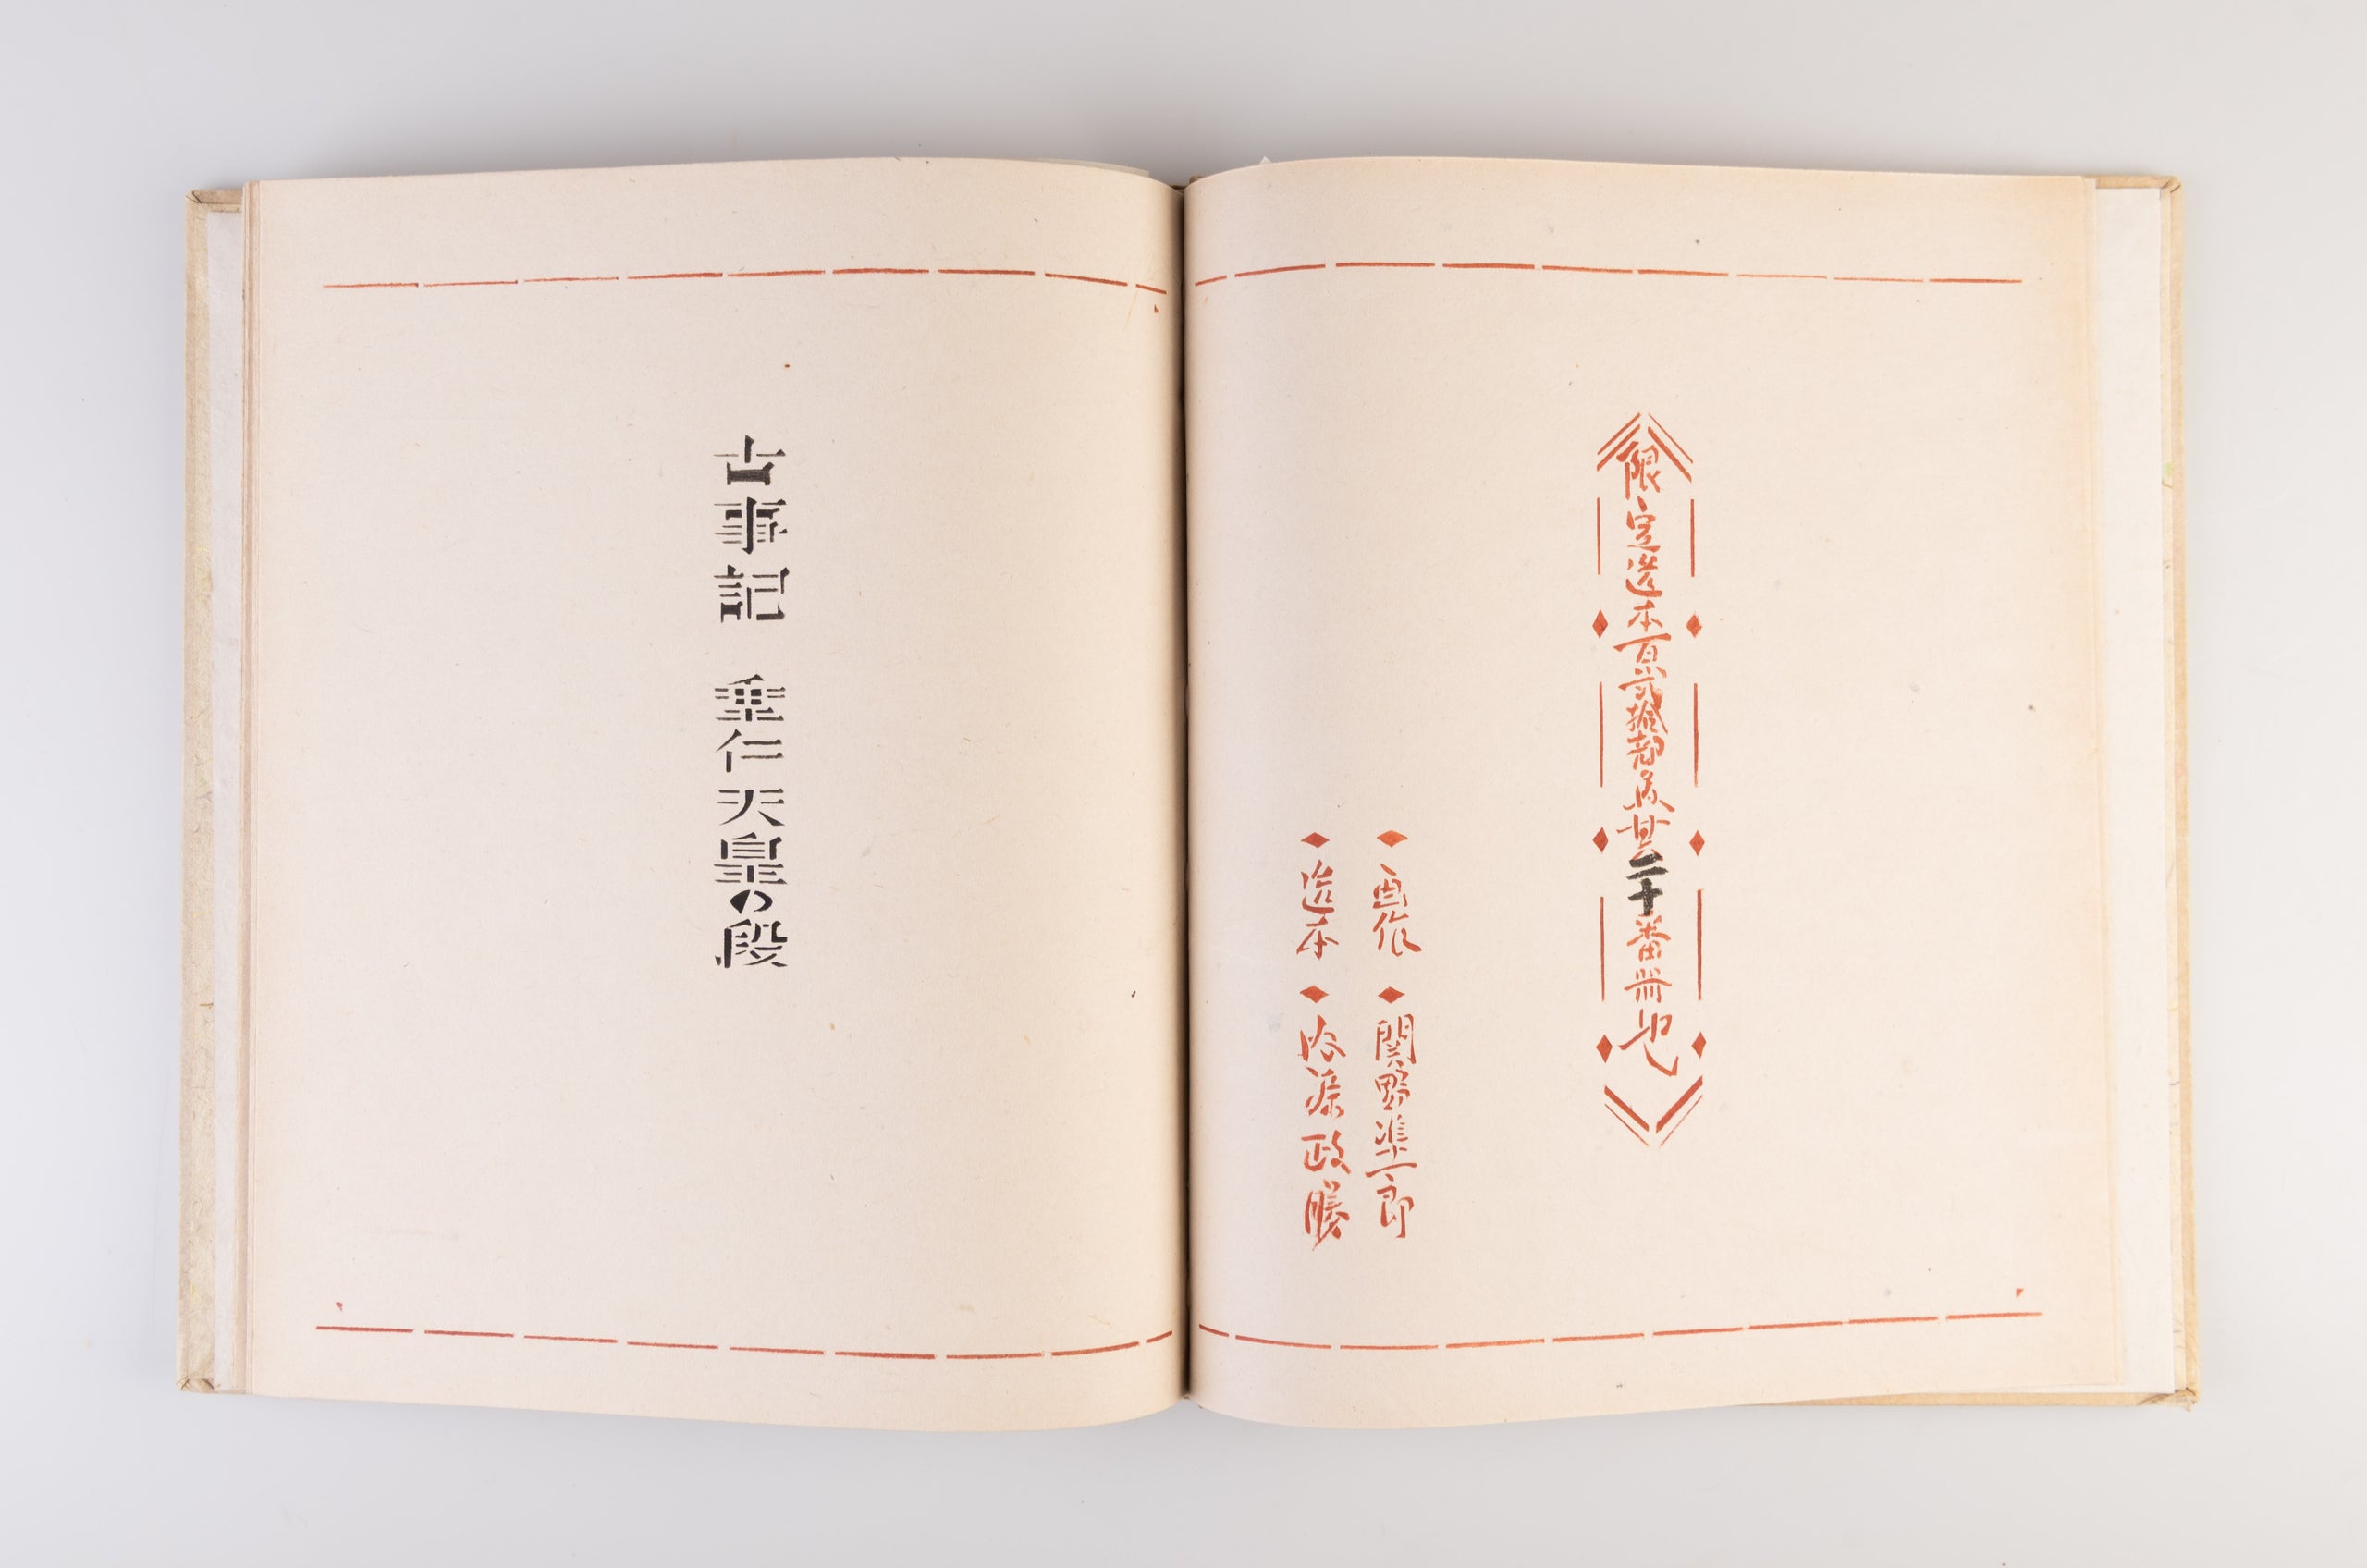 限定造本百弐拾部内其二十番冊也
画作 関野準一郎
造本 内藤政勝
古事記 垂仁天皇の段